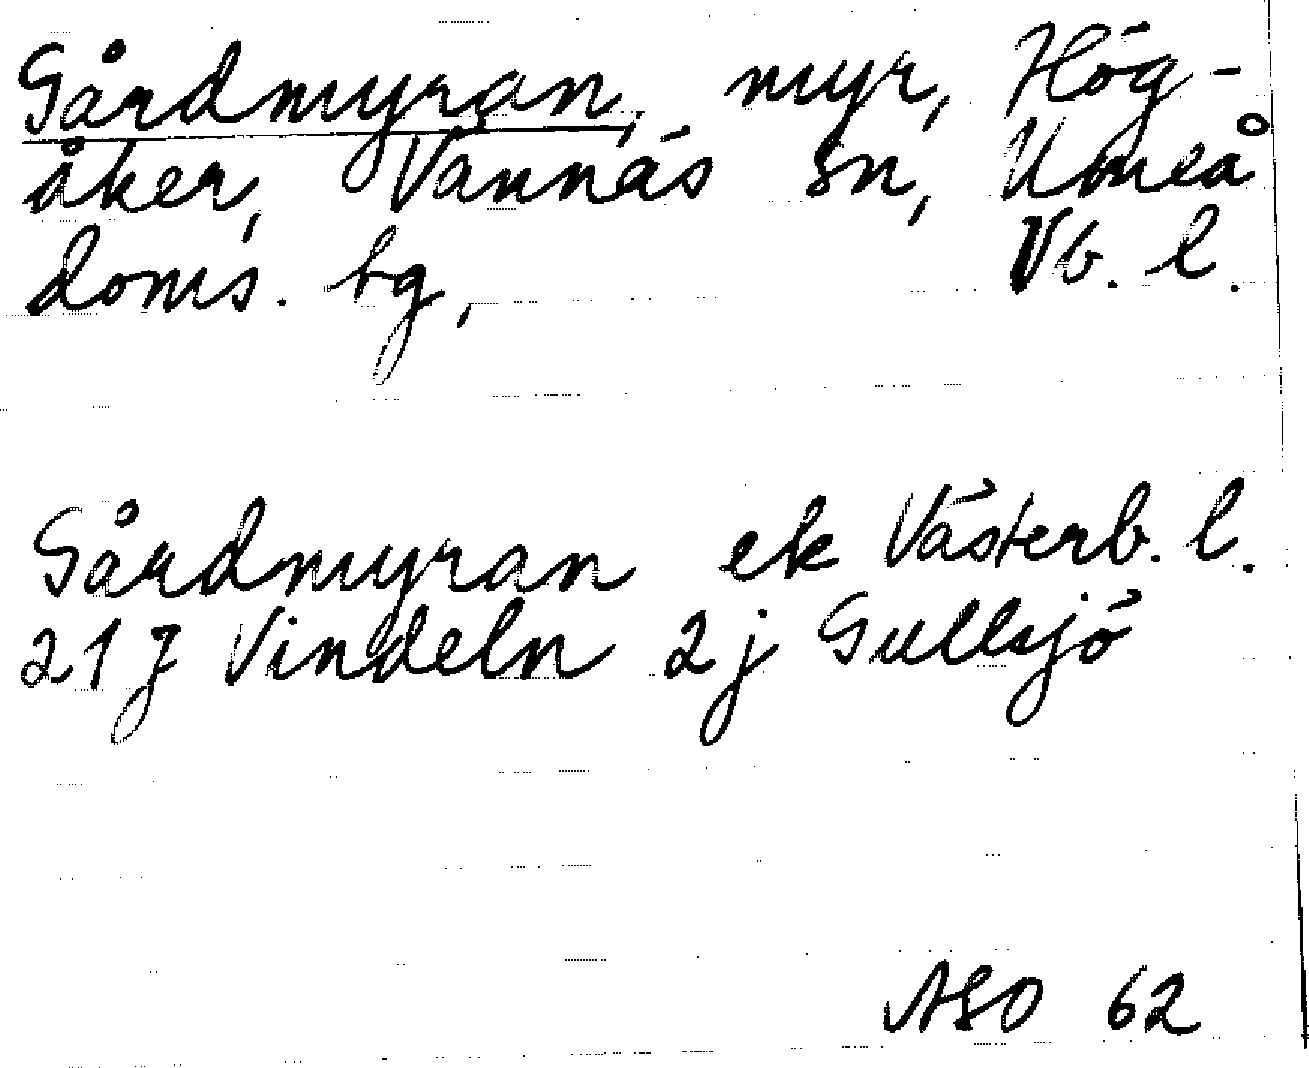 Gårdmyran, myr, Hög-
åker, Vännäs sn, Umeå
doms. bg, Vb. l.
Gårdmyran ek Västerb. l.
21 J Vindeln 2 j Gullsjö
ASO 62